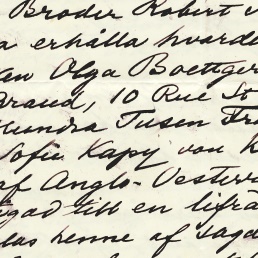 Broder Robert
a erhålla hvarde
en Olga Boettger
Braud, 10 Rue St
Hundra Tusen Fr
Sofie Kapy von K
af Anglo-Vesterr
gad till en lifrä
las henne af sagd